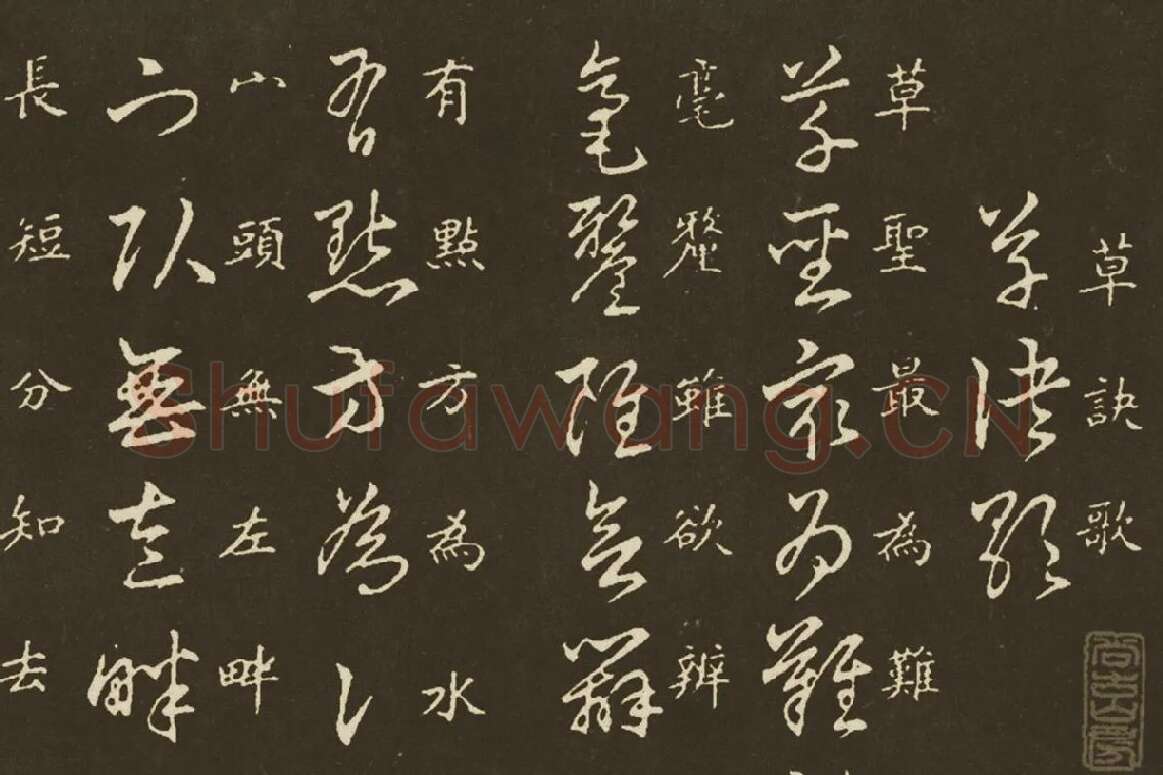 草訣歌
草訣歌
草聖最為難
草聖最為難
毫釐雖欲辨
毫釐雖欲辨
有點方為水
有點方為水
山頭無左畔
山頭無左畔
長短分知去
尚古山房
Shufawang.CN